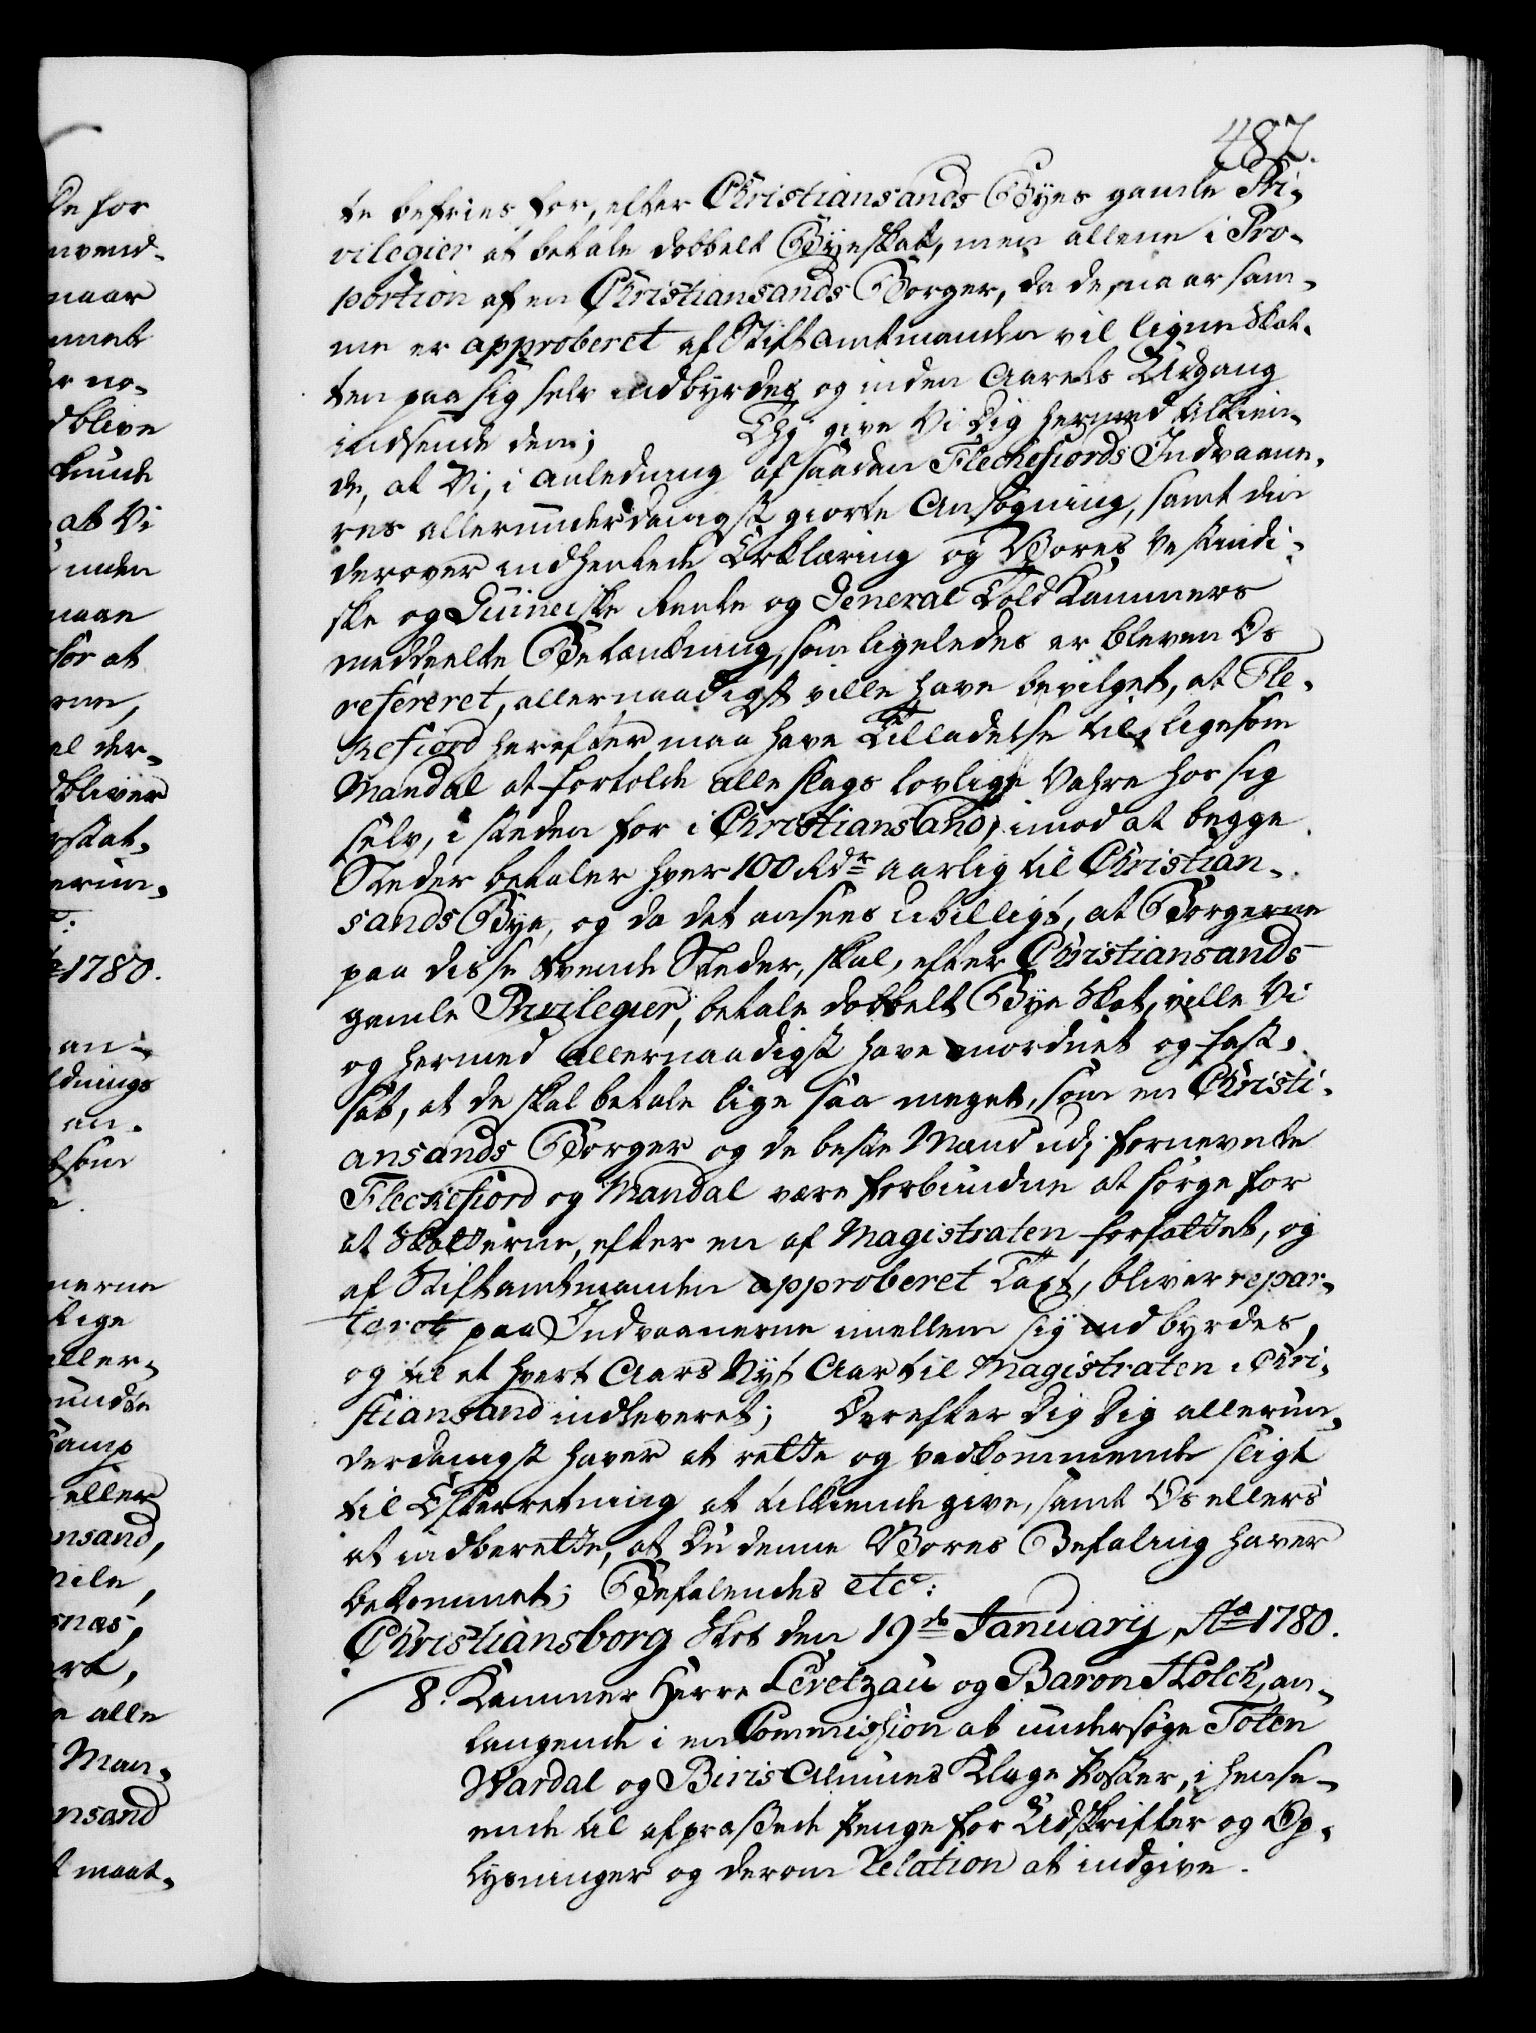 487.
te befries for, efter Christiansands Byes gamle Pri-
vilegier at betale dobbelt Byeskat, men allene i Pro-
portion af en Christiansands Borger, da de, naar sam-
me er approberet af Stiftamtmanden vil ligne Skat-
ten paa sig selv indbyrdes og inden Aarets Udgang
indsende den; Thj give Vi Dig hermed tilkien-
de, at Vi, i Anledning af saadan Fleckefiords Indvaane-
res allerunderdanigst giorte Ansøgning, samt din
derover indhentede Erklæring og Vores Vestindi-
ske og Guineiske Rente og General Told Kammers
meddeelte Betænkning, som ligeledes er bleven Os
refereret, allernaadigst ville have bevilget, at Fle-
kefiord herefter maa have Tilladelse til, ligesom
Mandal at fortolde alle slags lovlige Vahre hos sig
selv, i steden for i Christiansand, imod at begge
Steder betaler hver 100 Rdr aarlig til Christian-
sands Bye, og da det ansees ubilligt, at Borgerne
paa disse tvende Steder, skal, efter Christiansands
gamle Privilegier, betale dobbelt Bye Skat, ville Vi
og hermed allernaadigst have anordnet og fast-
sat, at de skal betale lige saa meget, som en Christi-
ansands Borger og de beste Mænd udj fornevnte
Fleckefiord og Mandal være forbundne at sørge for
at Skatterne, efter en af Magistraten forfattet, og
af Stiftamtmanden approberet Taxt, bliver repar-
teret paa Indvaanerne imellem sig indbyrdes,
og til et hvert Aars Nyt Aar til Magistraten i Chri-
stiansand indleveret; Derefter Dig allerun-
derdanigst haver at rette og vedkommende sligt
til Efterretning at tilkiende give, samt Os ellers
at indberette, at Du denne Vores Befaling haver
bekommet; Befalendes etc:
Christiansborg Slot den 19de Januarij Ao 1780.
8. Kammer Herre Levetzau og Baron Holck, an-
langende i en Commission at undersøge Toten
Wardal og Biris Almues Klage Poster, i Hense-
ende til afpræssede Penge for Udskrifter og Op-
lysninger og derom Relation at indgive.